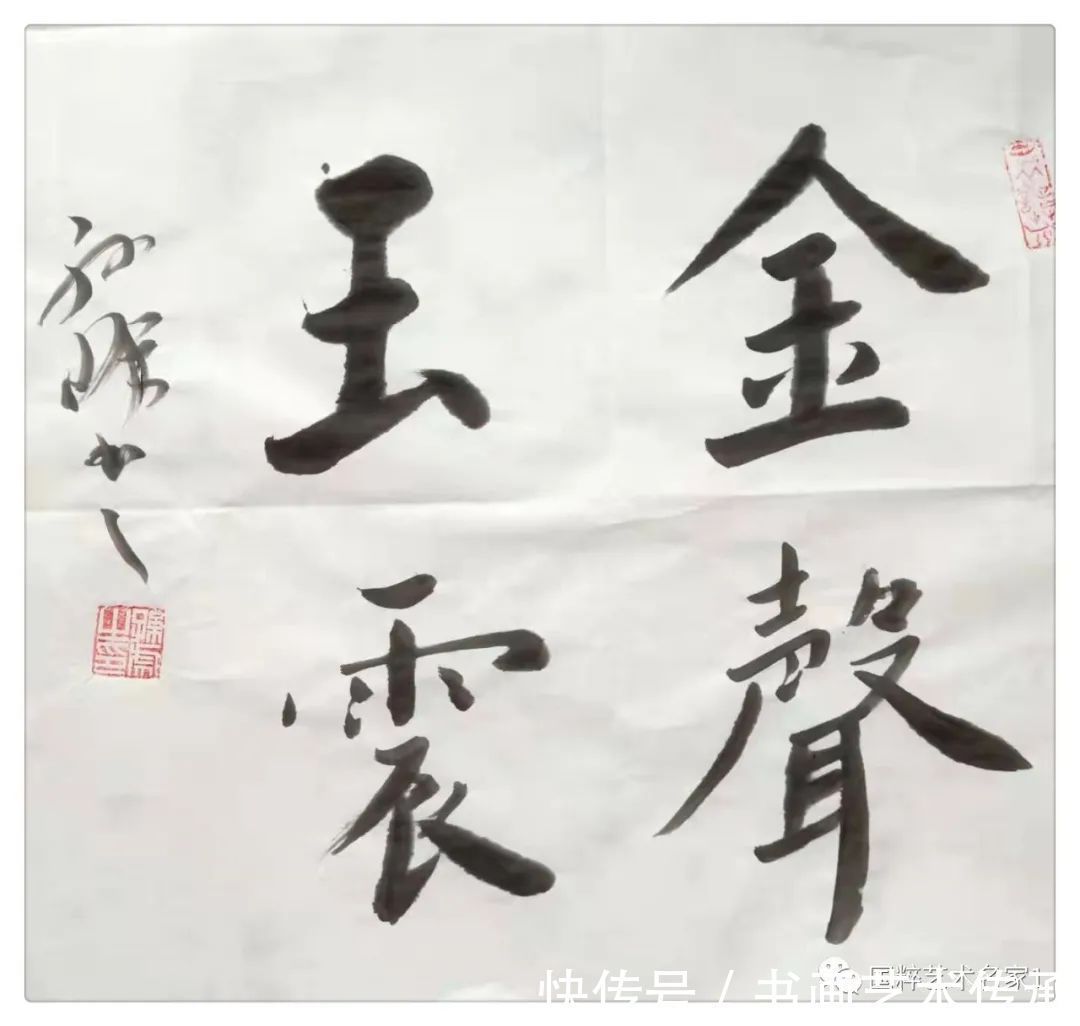 金聲
玉震
国粹艺术名家1
快传号 / 书画艺术传承